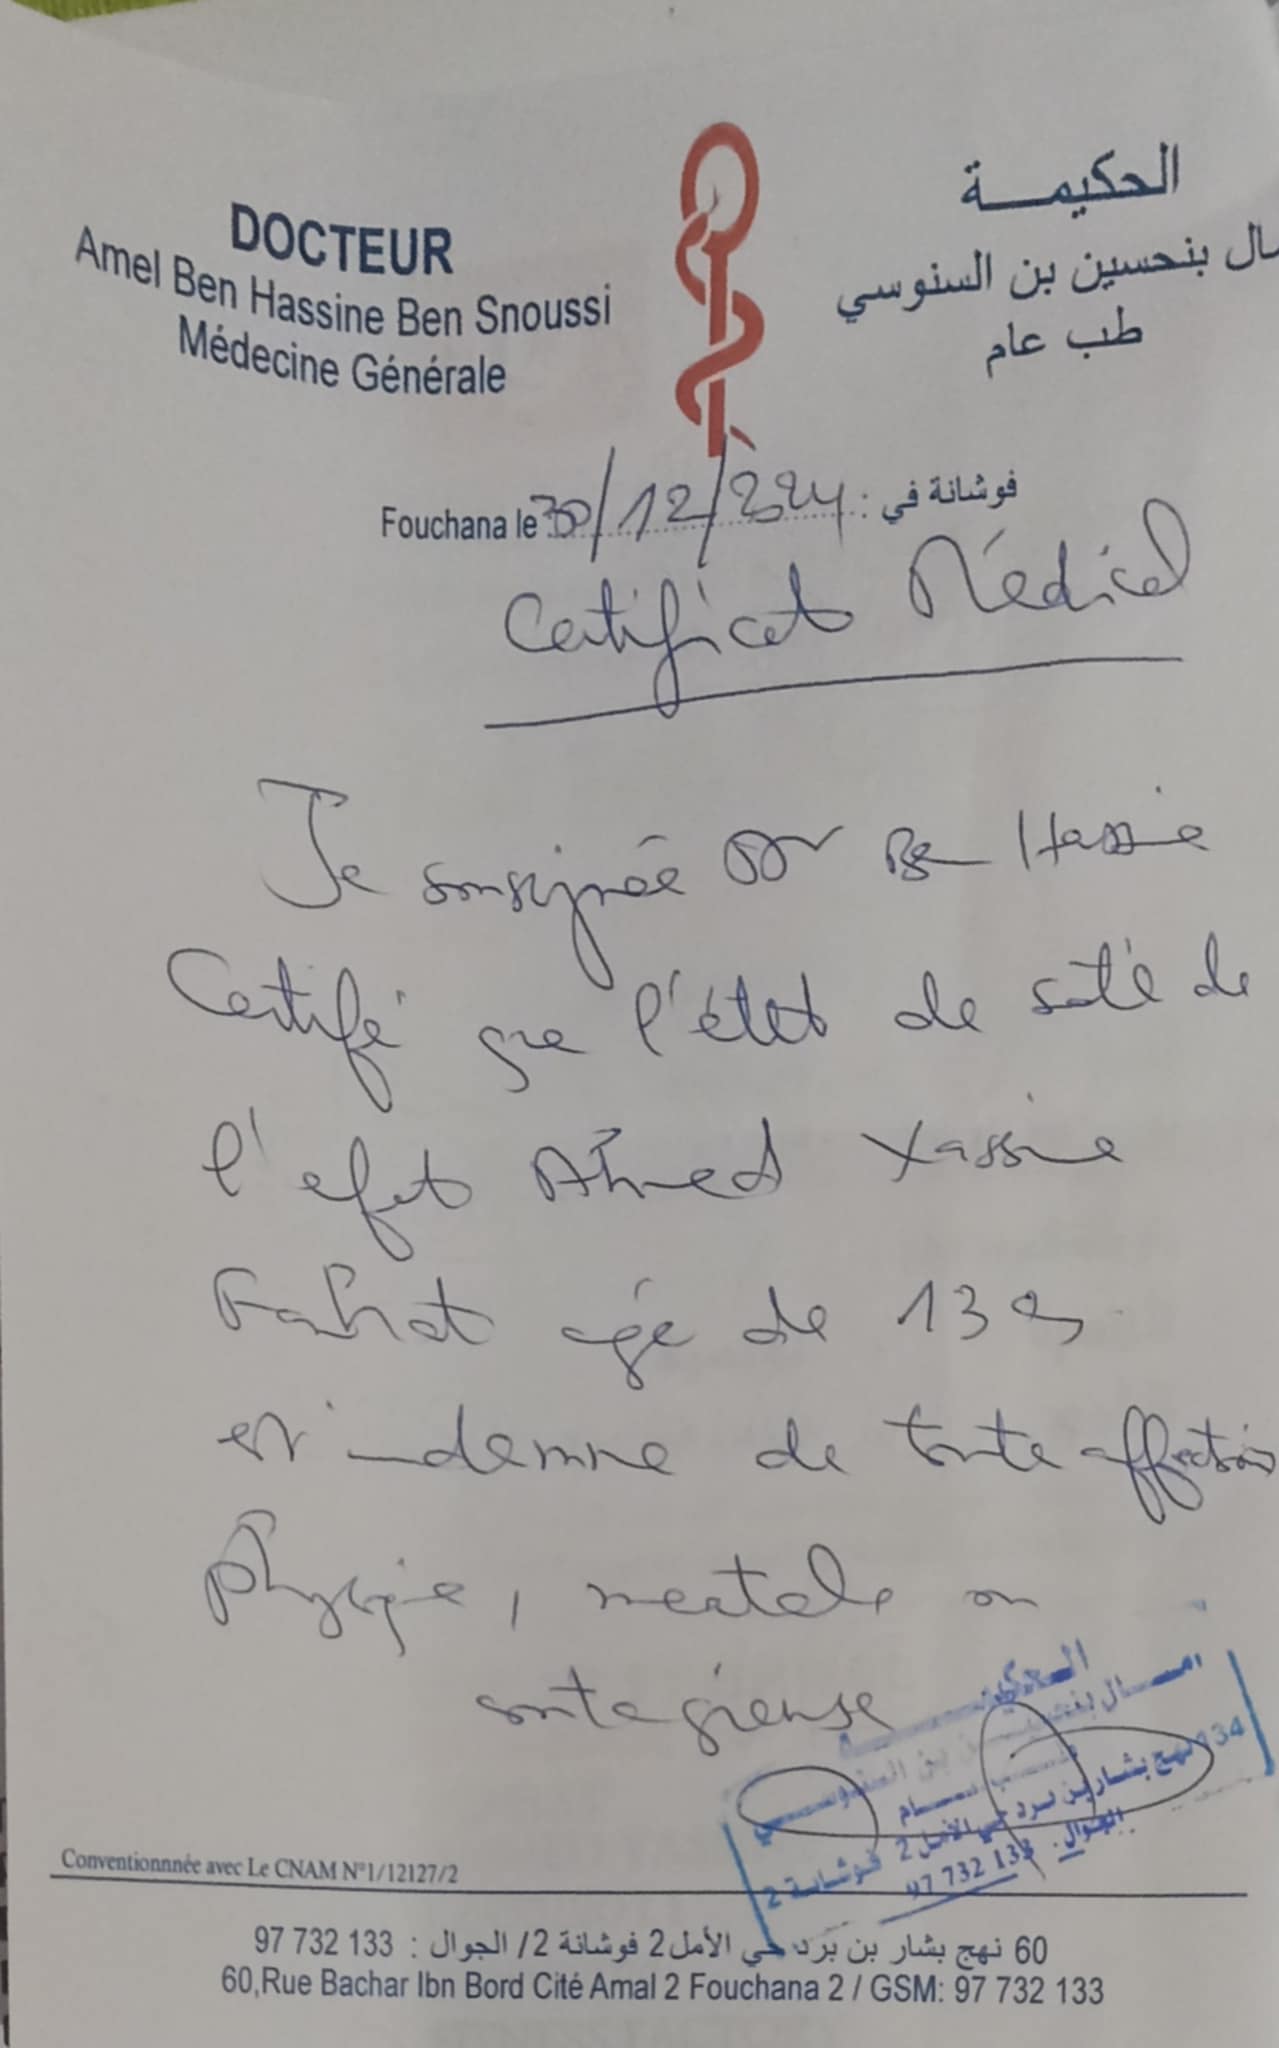 DOCTEUR
Amel Ben Hassine Ben Snoussi
Médecine Générale
الحكيمـــة
ـال بنحسين بن السنوسي
طب عام
Fouchana le 30/12/2024 : فوشانة في
Certificat Médical
Je soussignée Dr Ben Hassine
Certifie que l'état de santé de
l'enfant Ahmed Yassine
âgé de 13 ans
est indemne de toute affection
physique, mentale ou
contagieuse
الحكيمـــة
امـــال بنحسيـــن بن السنوســـي
طـــب عـــام
134 نهج بشار بن بـرد حي الأمل 2 فـوشـانـة 2
الجوال: 97 732 133
Conventionnnée avec Le CNAM N°1/12127/2
60 نهج بشار بن برد حي الأمل 2 فوشانة 2/ الجوال : 133 732 97
60,Rue Bachar Ibn Bord Cité Amal 2 Fouchana 2 / GSM: 97 732 133